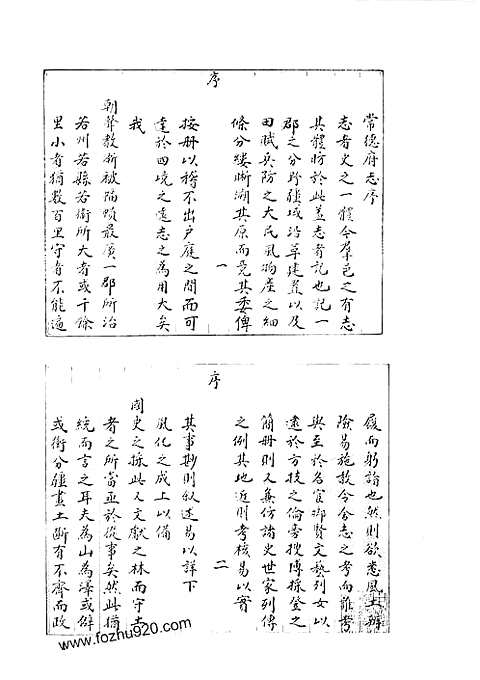 常德府志序
志者史之一體今羣邑之有志
其體昉於此蓋志者記也記一
郡之分野疆域沿革建置以及
田賦兵防之大民風物產之細
條分縷晰溯其原而竟其委俾
序
一
按册以稽不出戶庭之間而可
達於四境之遠志之為用大矣
我
朝聲教所被隔頻最廣一郡所治
若州若縣若衛所大者或千餘
里小者猶數百里守者不能遍
履而躬諮也然則欲悉風土辨
險易施教令舍志之考而難考
與至於名宦鄉賢文藝列女以
逮於方技之倫旁搜博採登之
簡册則又無仿諸史世家列傳
之例其地近則考核易以實
序
二
其事尠則叙述易以詳下
風化之成上以備
國史之採此又文獻之林而守土
者之所當亟於從事矣然此猶
統而言之耳夫為山為澤或僻
或衝分疆畫土斷有不齊而政
www.fozhu920.com